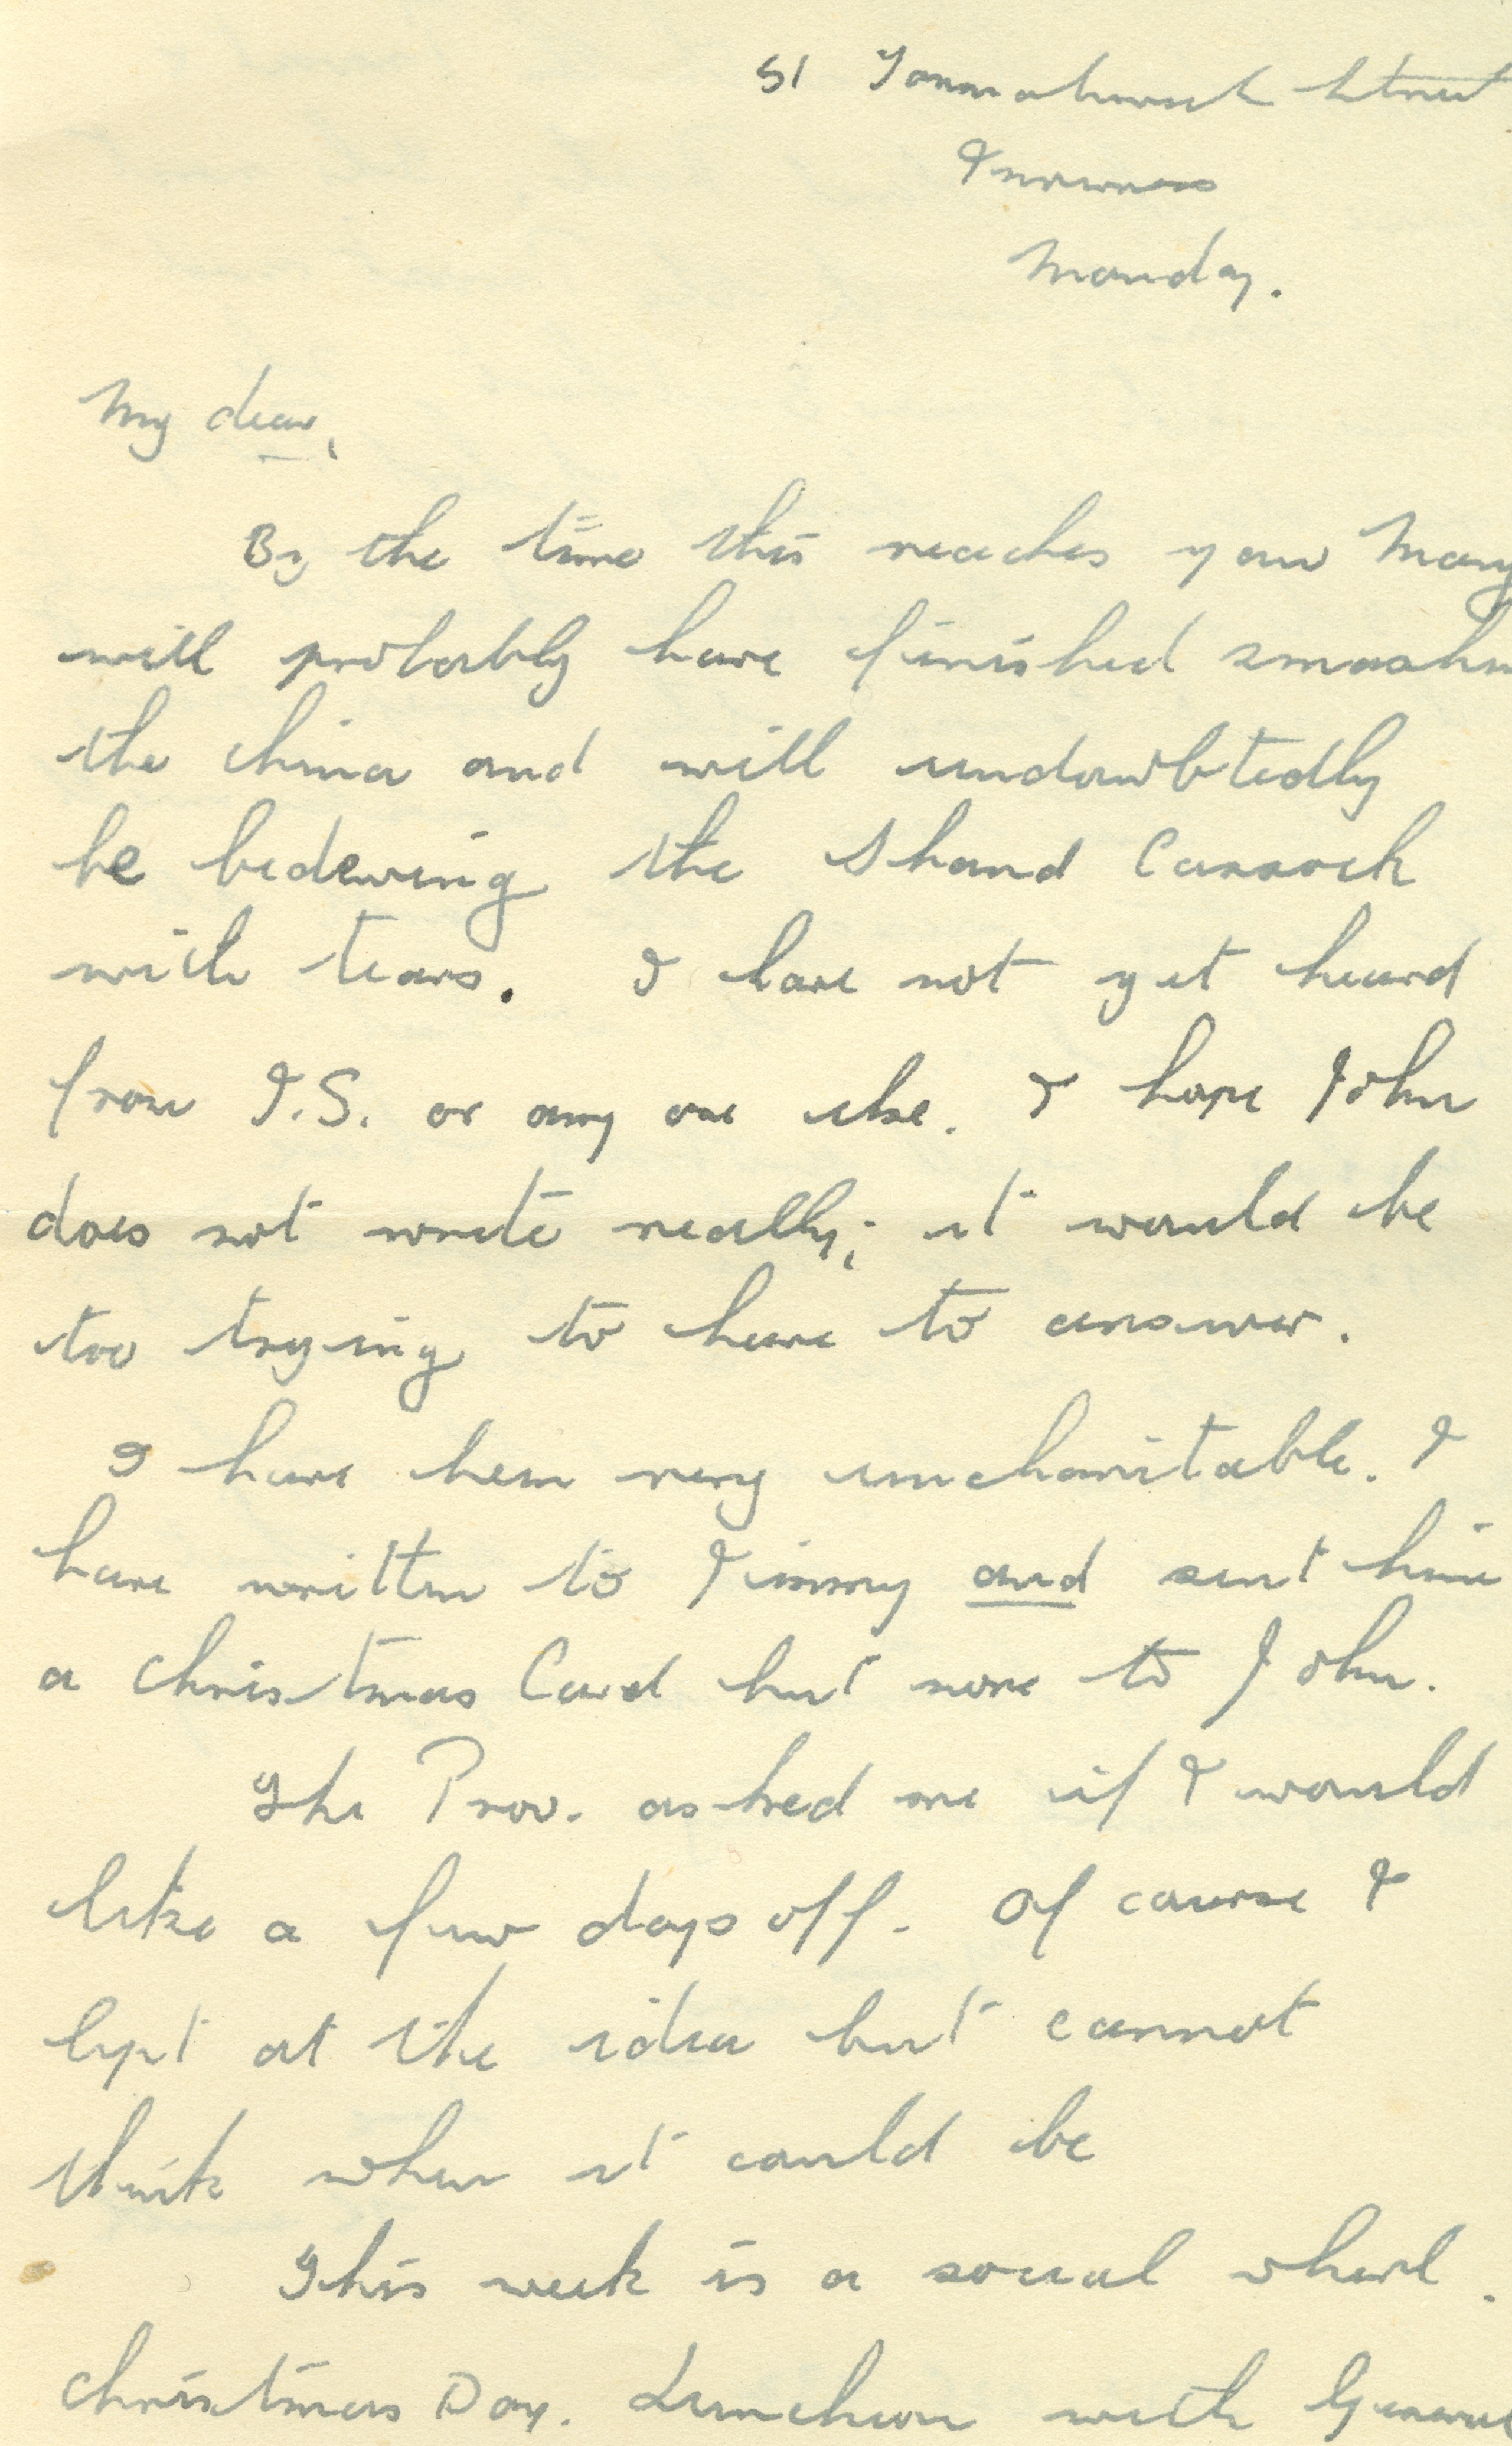 51 Tomnahurich Street
Inverness
Monday.
My dear,
By the time this reaches you Mary
will probably have finished smashin
the china and will undoubtedly
be bedewing the Shand Cassock
with tears. I have not yet heard
from I.S. or any one else. I hope John
does not write really; it would be
too trying to have to answer.
I have been very uncharitable. I
have written to Jimmy and sent him
a Christmas Card but none to John.
The Prov. asked me if I would
like a few days off. Of course I
lept at the idea but cannot
think when it could be
This week is a social whirl.
Christmas Day. Luncheon with General